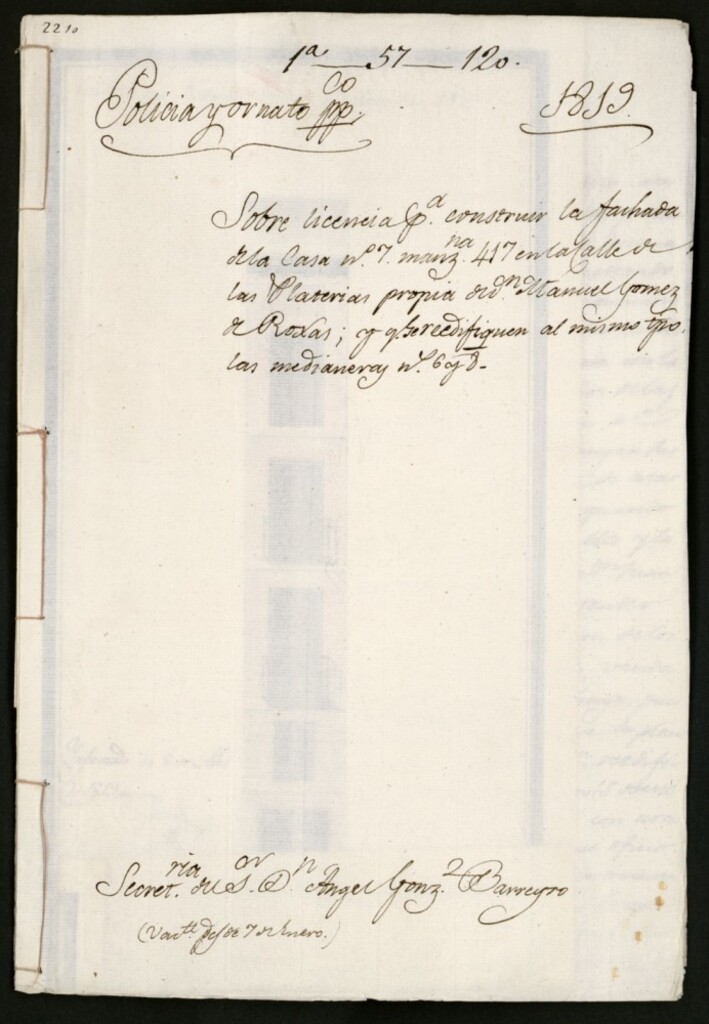 2210
1ª — 57 — 120.
Policia y ornato ppco. 1819.
Sobre licencia pª. construir la fachada
de la Casa nº. 7. manzna. 417 en la Calle de
las Platerias propia de dn. Manuel Gomez
de Roxas; y q. se reedifiquen al mismo tpo.
las medianeras nº. 6 y 8.
Secretria. del Sor. Dn. Angel Gonzz. Barreyro
(Vactte. desde 7 de Enero.)